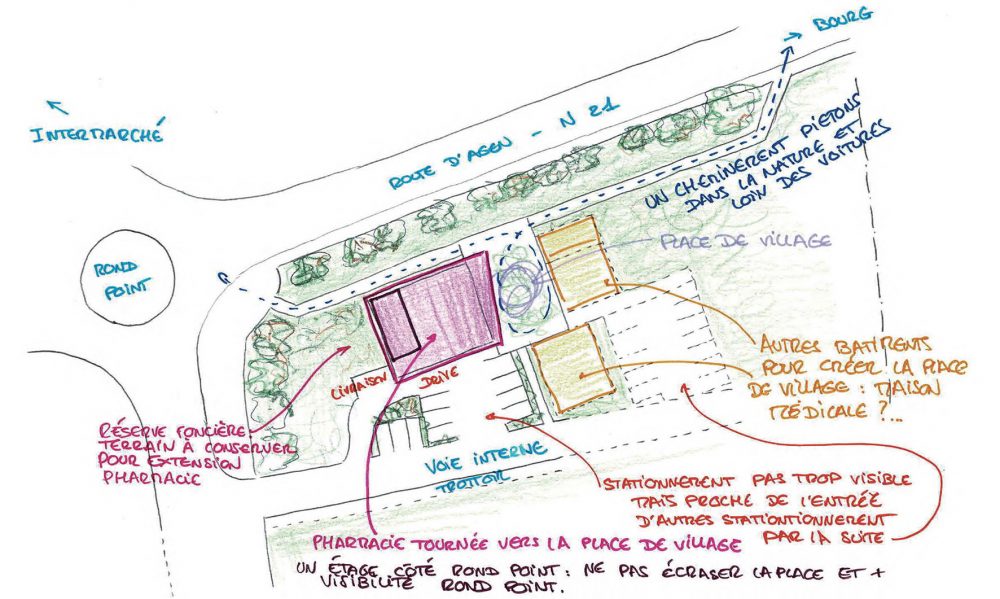 BOURG
INTERMARCHÉ
ROUTE D'AGEN - N 21
UN CHEMINEMENT PIÉTONS
DANS LA NATURE ET
LOIN DES VOITURES
PLACE DE VILLAGE
ROND
POINT
AUTRES BATIMENTS
POUR CRÉER LA PLACE
DE VILLAGE : MAISON
MÉDICALE ?...
LIVRAISON
DRIVE
RÉSERVE FONCIÈRE
TERRAIN À CONSERVER
POUR EXTENSION
PHARMACIE
VOIE INTERNE
TROTTOIR
STATIONNEMENT PAS TROP VISIBLE
MAIS PROCHE DE L'ENTRÉE
D'AUTRES STATIONTIONNEMENT
PAR LA SUITE
PHARMACIE TOURNÉE VERS LA PLACE DE VILLAGE
UN ÉTAGE CÔTÉ ROND POINT : NE PAS ÉCRASER LA PLACE ET +
VISIBILITÉ ROND POINT.